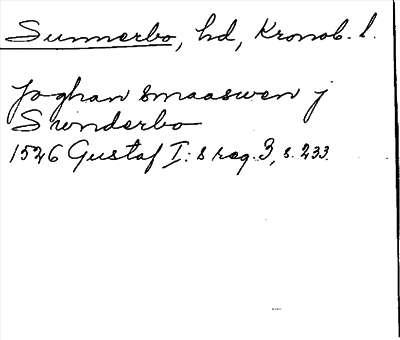 Sunnerbo, hd, Kronob. l.
Joghan smaaswen j
Swnderbo
1526 Gustaf I:s reg. 3, s. 233.